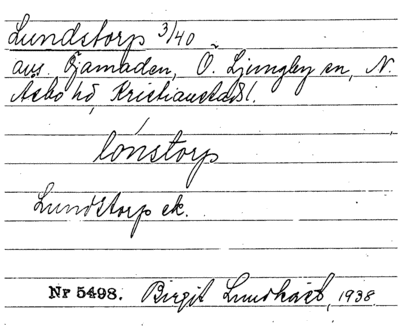 Lundstorp 3/40
avs. Fjamaden, Ö. Ljungby sn, N.
Åsbo hd, Kristianstads l.
lónstorp
Lundstorp ek.
Nr 5498. Birgit Lundkvist, 1938